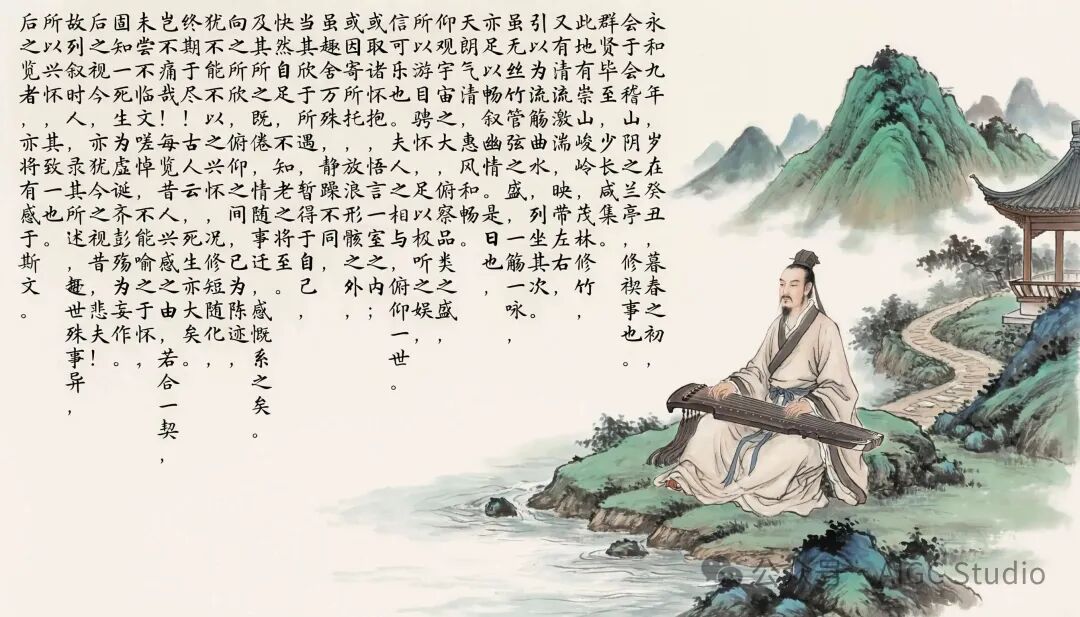 永和九年,岁在癸丑,暮春之初,
会于会稽山阴之兰亭,修禊事也。
群贤毕至,少长咸集。
此地有崇山,峻岭,茂林修竹,
又有清流激湍,映带左右,
引以为流筋曲水,列坐其次。
虽无丝竹管弦之盛,一筋一咏,
亦足以畅叙幽情。是日也,
天朗气清,惠风和畅,
仰观宇宙之大,俯察品类之盛,
所以游目骋怀,足以极听之娱,
信可乐也。夫人之相与,俯仰一世。
或取诸怀抱,悟言一室之内;
或因寄所托,放浪形骸之外,
虽趣舍万殊,静躁不同,
当其欣于所遇,暂得于自己,
快然自足,不知老之将至。
及其所之既倦,情随事迁,感慨系之矣。
向之所欣,俯仰之间,已为陈迹,
犹不能不以之兴怀,况修短随化,
终期于尽!古人云,死生亦大矣。
岂不痛哉!每览昔人兴感之由,若合一契,
未尝不临文嗟悼,不能喻之于怀,
固知一死生为虚诞,齐彭殇为妄作。
后之视今,亦犹今之视昔,悲夫!
故列叙时人,录其所述,趣世殊事异,
所以兴怀,其致一也。
后之览者,亦将有感于斯文。
公众号 · AIGC Studio